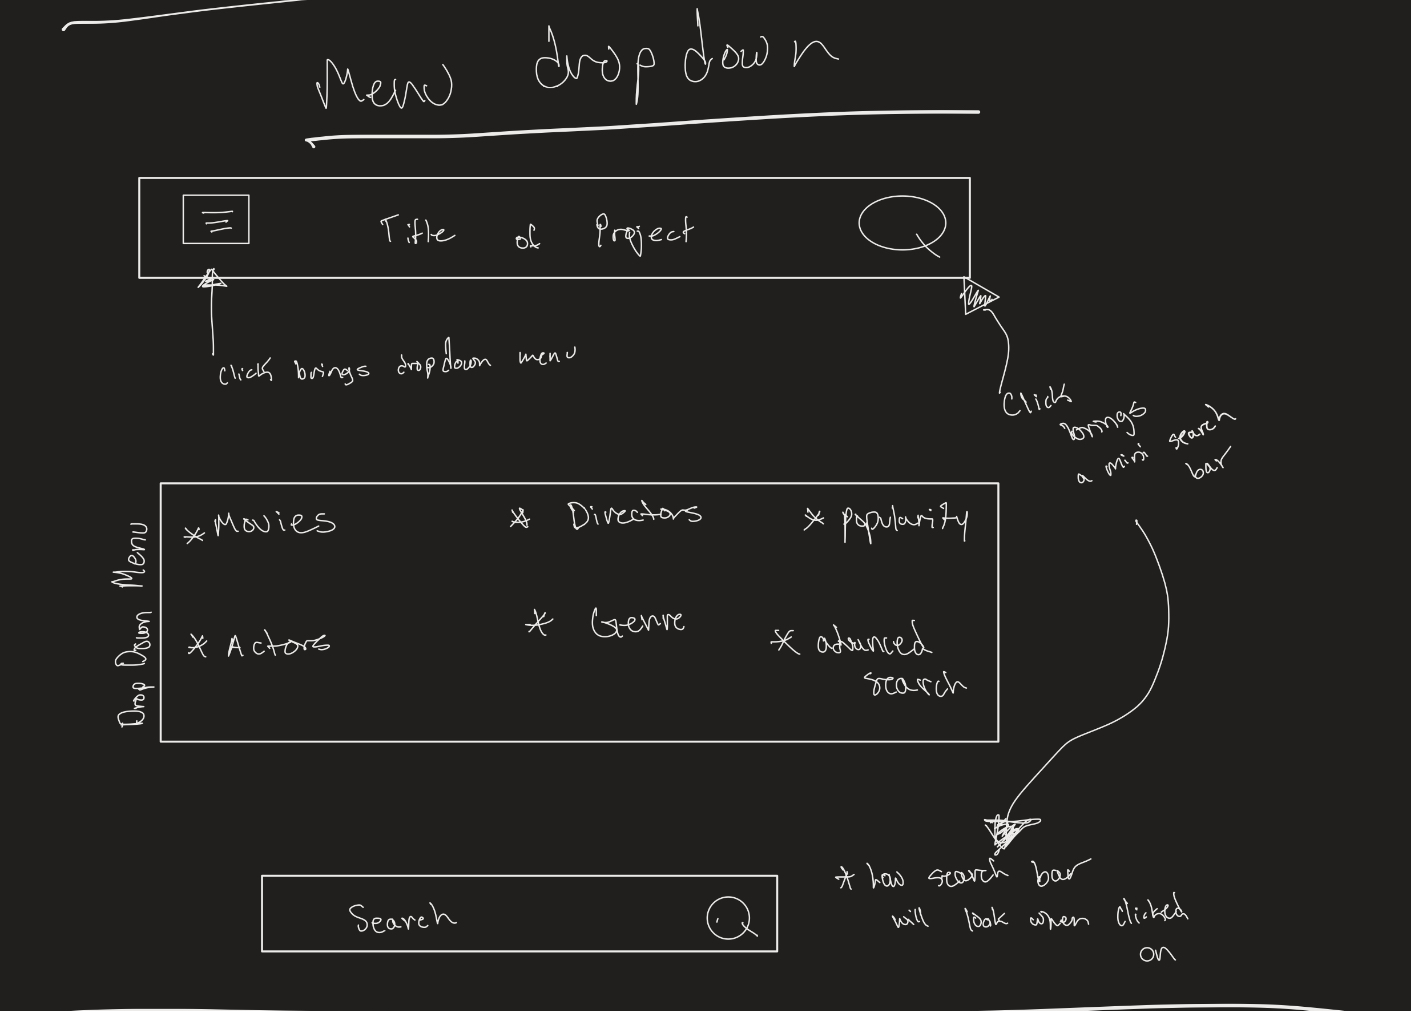 Menu dropdown
Title of Project
Click brings dropdown menu
Click
brings
a mini search
bar
Drop Down Menu
* Movies
* Directors
* Popularity
* Actors
* Genre
* advanced
search
Search
* how search bar
will look when clicked
on